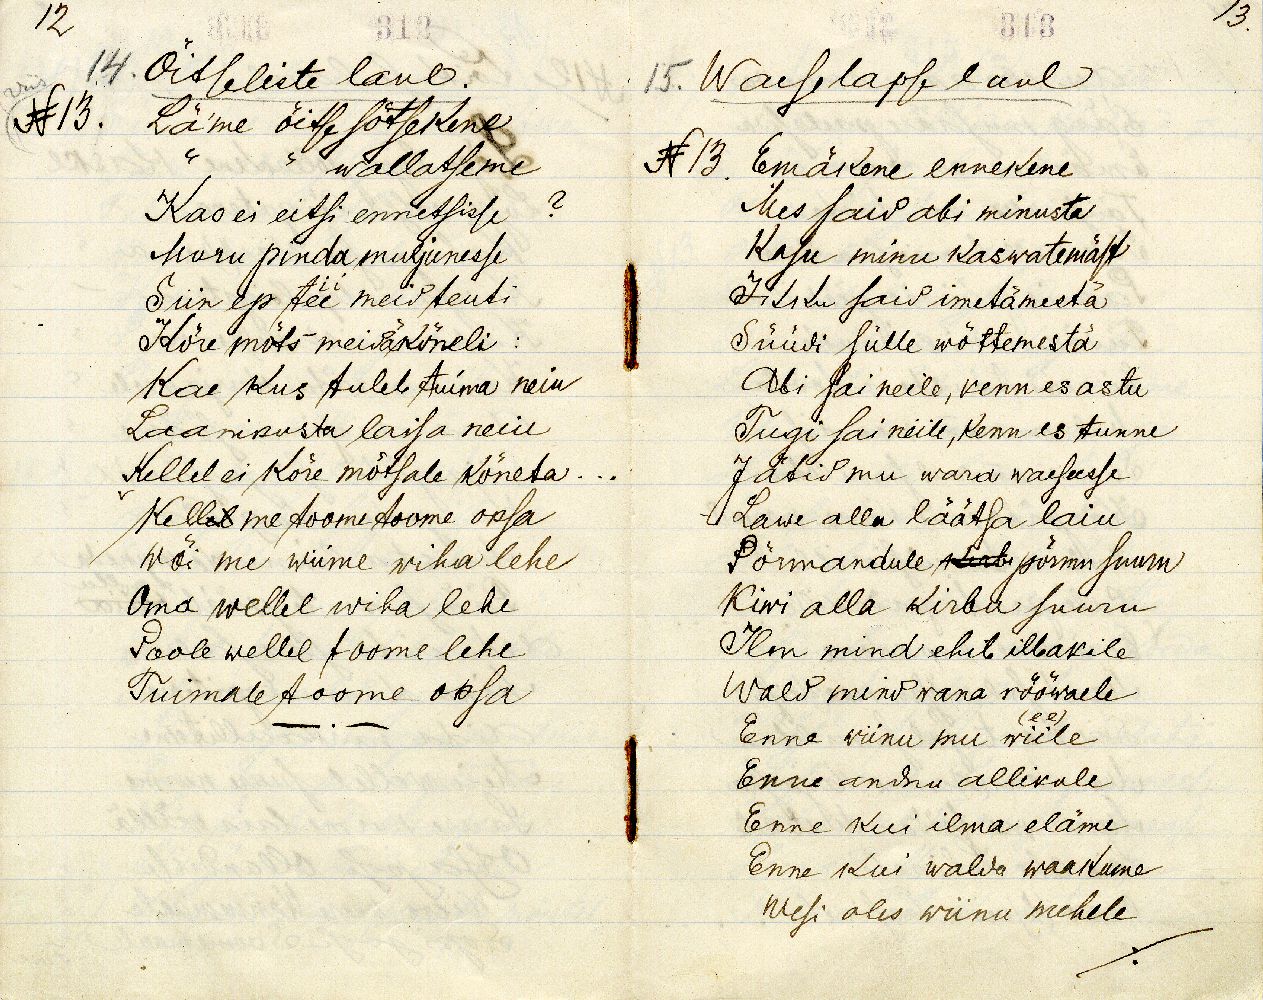 12
14. Öitseliste laul.
№13. Läme öitse sötsekene
" " wallatseme
Kao ei eitsi ennetsisse ?
Muru pinda muljunesse
Siin ep tëë meid teuti
Köre möts meid äköneli :
Kae kus tuleb tuima neiu
Laanikusta laisa neiu
Kellel ei köre mötsale köneta ...
Kellel me toome toome oksa
Wöi me wiime wiha lehe
Oma wellel wiha lehe
Poole wellel toome lehe
Tuimale toome oksa
13.
15. Waeselapse laul
№13. Emäkene ennekene
Mes said abi minusta
Kasu minu kaswatemäst
Ihku said imetämestä
Süüdi sülle wöttemestä
Abi sai neile, kenn es astu
Tugi sai neile, kenn es tunne
Jätid mu wara waesesse
Lawe alla läätsa laiu
Pörmandule pörmu suuru
Kiwi alla kirbu suuru
Ilm mind eheb illakile
Wald mind wana rööwaele
(ee)
Enne wiinu mu wiile
Enne andnu allikale
Enne kui ilma eläme
Enne kui walda waakume
Wesi oles wiinu mehele